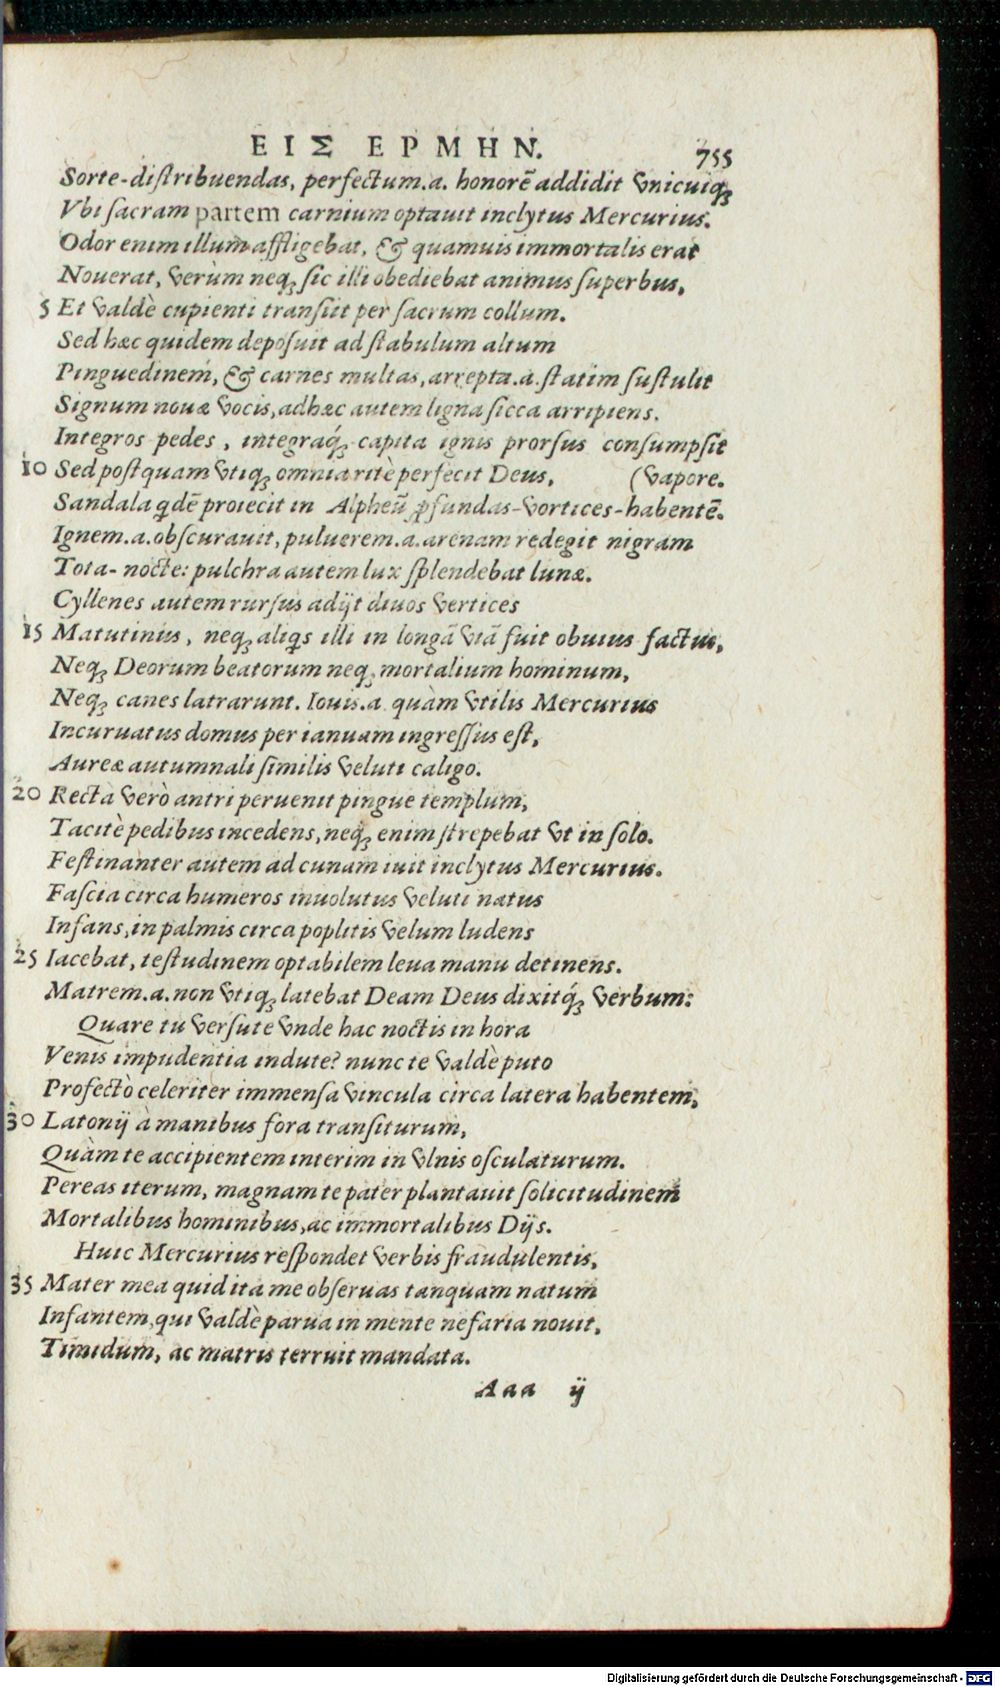 ΕΙΣ ΕΡΜΗΝ. 755
Sorte-distribuendas, perfectum.a. honorē addidit vnicuiq;
Vbi sacram partem carnium optauit inclytus Mercurius.
Odor enim illum affligebat, & quamuis immortalis erat
Nouerat, verùm neq; sic illi obediebat animus superbus,
5 Et valdè cupienti transijt per sacrum collum.
Sed hæc quidem deposuit ad stabulum altum
Pinguedinem, & carnes multas, arrepta.a. statim sustulit
Signum nouæ vocis, adhæc autem ligna sicca arripiens.
Integros pedes, integraq́; capita ignis prorsus consumpsit
10 Sed postquam vtiq; omnia ritè perfecit Deus, (vapore.
Sandala qdē proiecit in Alpheū ꝓfundas-vortices-habentē.
Ignem.a.obscurauit, puluerem.a.arenam redegit nigram
Tota-nocte: pulchra autem lux splendebat lunæ.
Cyllenes autem rursus adijt diuos vertices
15 Matutinus, neq; aliqs illi in longā viā fuit obuius factus,
Neq; Deorum beatorum neq; mortalium hominum,
Neq; canes latrarunt. Iouis.a. quàm vtilis Mercurius
Incuruatus domus per ianuam ingressus est,
Aureæ autumnali similis veluti caligo.
20 Recta verò antri peruenit pingue templum,
Tacitè pedibus incedens, neq; enim strepebat vt in solo.
Festinanter autem ad cunam iuit inclytus Mercurius.
Fascia circa humeros inuolutus veluti natus
Infans, in palmis circa poplitis velum ludens
25 Iacebat, testudinem optabilem leua manu detinens.
Matrem.a.non vtiq; latebat Deam Deus dixitq́; verbum:
Quare tu versute vnde hac noctis in hora
Venis impudentia indute? nunc te valdè puto
Profectò celeriter immensa vincula circa latera habentem,
30 Latonij à manibus fora transiturum,
Quàm te accipientem interim in vlnis osculaturum.
Pereas iterum, magnam te pater plantauit solicitudinem
Mortalibus hominibus, ac immortalibus Dijs.
Huic Mercurius respondet verbis fraudulentis,
35 Mater mea quid ita me obseruas tanquam natum
Infantem, qui valdè parua in mente nefaria nouit,
Timidum, ac matris terruit mandata.
Aaa ij
Digitalisierung gefördert durch die Deutsche Forschungsgemeinschaft - DFG